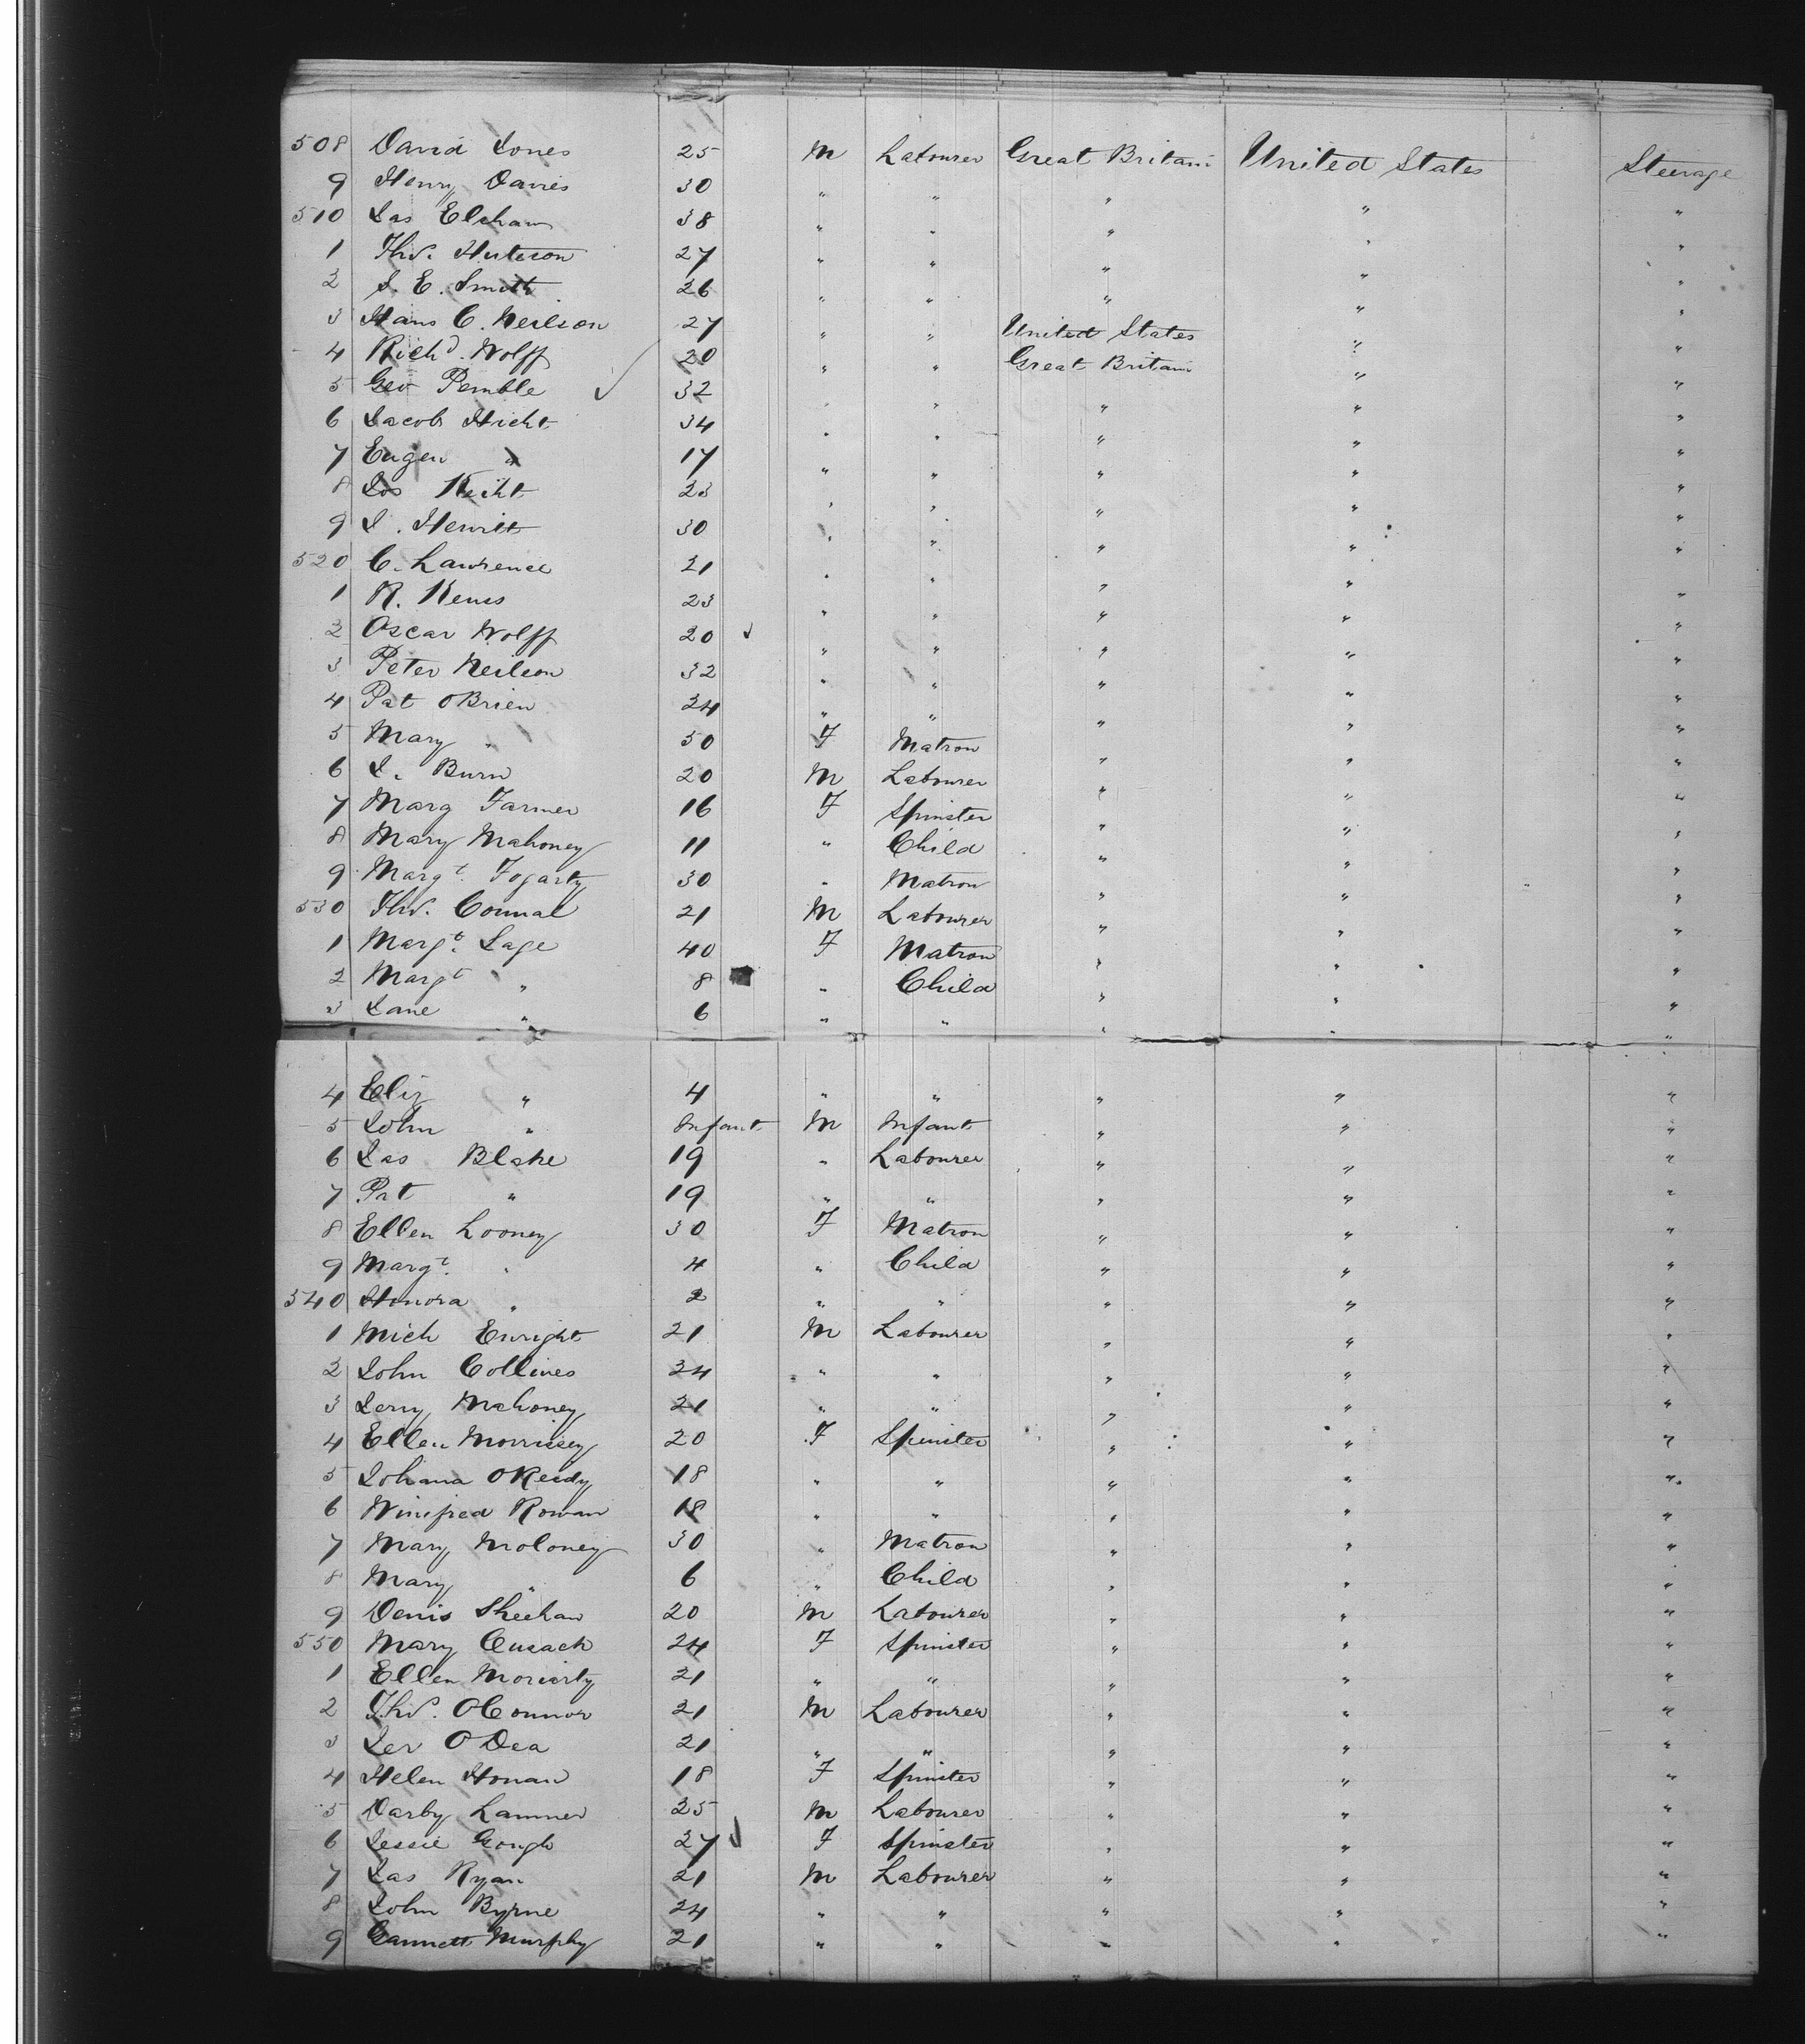 508 David Jones 25 M Labourer Great Britain United States Steerage
9 Henry Davies 30 " " " " "
510 Jas Elsham 38 " " " " "
1 Thos. Huteson 27 " " " " "
2 J. E. Smith 26 " " " " "
3 Hans C. Neilson 27 " " United States " "
4 Richd. Wolff 20 " " Great Britain " "
5 Geo Pemble 32 " " " " "
6 Jacob Hicht 34 " " " " "
7 Eugen " 17 " " " " "
8 Jos 23 " " " " "
9 J. Hewitt 30 " " " " "
520 C. Lawrence 21 " " " " "
1 R. 23 " " " " "
2 Oscar Wolff 20 " " " " "
3 Peter Neilson 32 " " " " "
4 Pat OBrien 24 " " " " "
5 Mary " 50 F Matron " " "
6 J. Burn 20 M Labourer " " "
7 Marg Farmer 16 F Spinster " " "
8 Mary Mahoney 11 " Child " " "
9 Margt. Fogarty 30 " Matron " " "
530 Thos. Connal 21 M Labourer " " "
1 Margt. Lage 40 F Matron " " "
2 Margt " 8 " Child " " "
3 Jane " 6 " " " " "
4 Eliz " 4 " " " " "
5 John " Infant M Infant " " "
6 Jas Blake 19 " Labourer " " "
7 Pat " 19 " " " " "
8 Ellen Looney 30 F Matron " " "
9 Margt. " 4 " Child " " "
540 Honora " 2 " " " " "
1 Mich Enright 21 M Labourer " " "
2 John Collines 24 " " " " "
3 Jerry Mahoney 21 " " " " "
4 Ellen Morrissey 20 F Spinster " " "
5 Johana OReidy 18 " " " " "
6 Winifred Rowan 18 " " " " "
7 Mary Moloney 30 " Matron " " "
8 Mary " 6 " Child " " "
9 Denis Sheehan 20 M Labourer " " "
550 Mary Cusack 24 F Spinster " " "
1 Ellen Moriarty 21 " " " " "
2 Thos. OConnor 21 M Labourer " " "
3 Jer O Dea 21 " " " " "
4 Helen Honan 18 F Spinster " " "
5 Darby Lamner 25 M Labourer " " "
6 Jessie Gough 27 F Spinster " " "
7 Jas Ryan 21 M Labourer " " "
8 John Byrne 24 " " " " "
9 Murphy 21 " " " " "